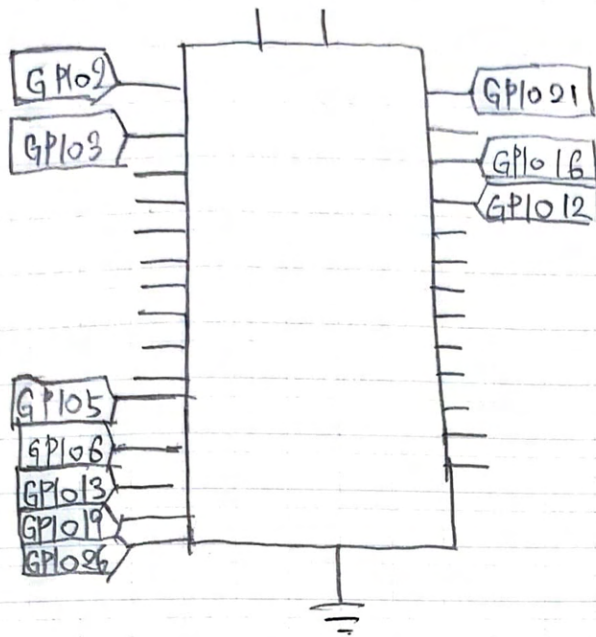 GPIO2
GPIO3
GPIO5
GPIO6
GPIO13
GPIO19
GPIO26
GPIO21
GPIO16
GPIO12